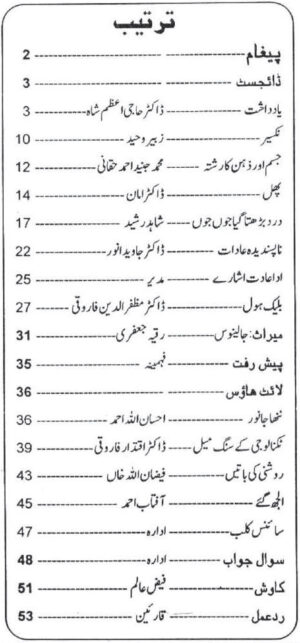 ترتیب
پیغام ---------- 2
ڈائجسٹ ---------- 3
یادداشت ---------- ڈاکٹر حاجی اعظم شاہ ---------- 3
نکسیر ---------- زبیر وحید ---------- 10
جسم اور ذہن کا رشتہ ---------- محمد جنید احمد حقانی ---------- 12
پھل ---------- ڈاکٹر امان ---------- 14
درد بڑھتا گیا جوں جوں ---------- شاہد رشید ---------- 17
ناپسندیدہ عادات ---------- ڈاکٹر جاوید انور ---------- 22
اداعادت اشارے ---------- مدیر ---------- 25
بلیک ہول ---------- ڈاکٹر مظفر الدین فاروقی ---------- 27
میراث: جالینوس ---------- رقیہ جعفری ---------- 31
پیش رفت ---------- فہمینہ ---------- 35
لائٹ ھاؤس ---------- 36
ننھا جانور ---------- احسان اللہ احمد ---------- 36
ٹکنالوجی کے سنگ میل ---------- ڈاکٹر اقتدار فاروقی ---------- 39
روشنی کی باتیں ---------- فیضان اللہ خاں ---------- 43
الجھ گئے ---------- آفتاب احمد ---------- 45
سائنس کلب ---------- ادارہ ---------- 47
سوال جواب ---------- ادارہ ---------- 48
کاوش ---------- فیض عالم ---------- 51
ردعمل ---------- قارئین ---------- 53